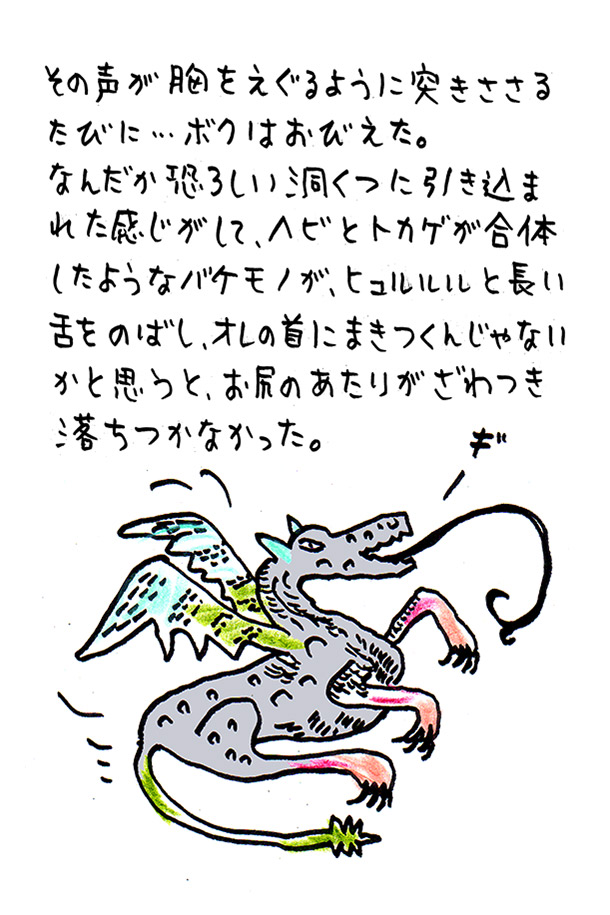 その声が胸をえぐるように突きささる
たびに…ボクはおびえた。
なんだか恐ろしい洞くつに引き込ま
れた感じがして、ヘビとトカゲが合体
したようなバケモノが、ヒュルルルと長い
舌をのばし、オレの首にまきつくんじゃない
かと思うと、お尻のあたりがざわつき
落ちつかなかった。
ギ